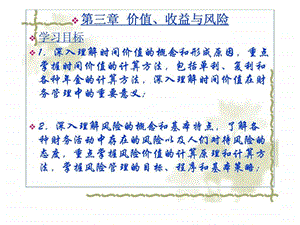 第三章 价值、收益与风险
学习目标
1. 深入理解时间价值的概念和形成原因，重点
掌握时间价值的计算方法，包括单利、复利和
各种年金的计算方法，深入理解时间价值在财
务管理中的重要意义；
2. 深入理解风险的概念和基本特点，了解各
种财务活动中存在的风险以及人们对待风险的
态度，重点掌握风险价值的计算原理和计算方
法，掌握风险管理的目标、程序和基本策略；